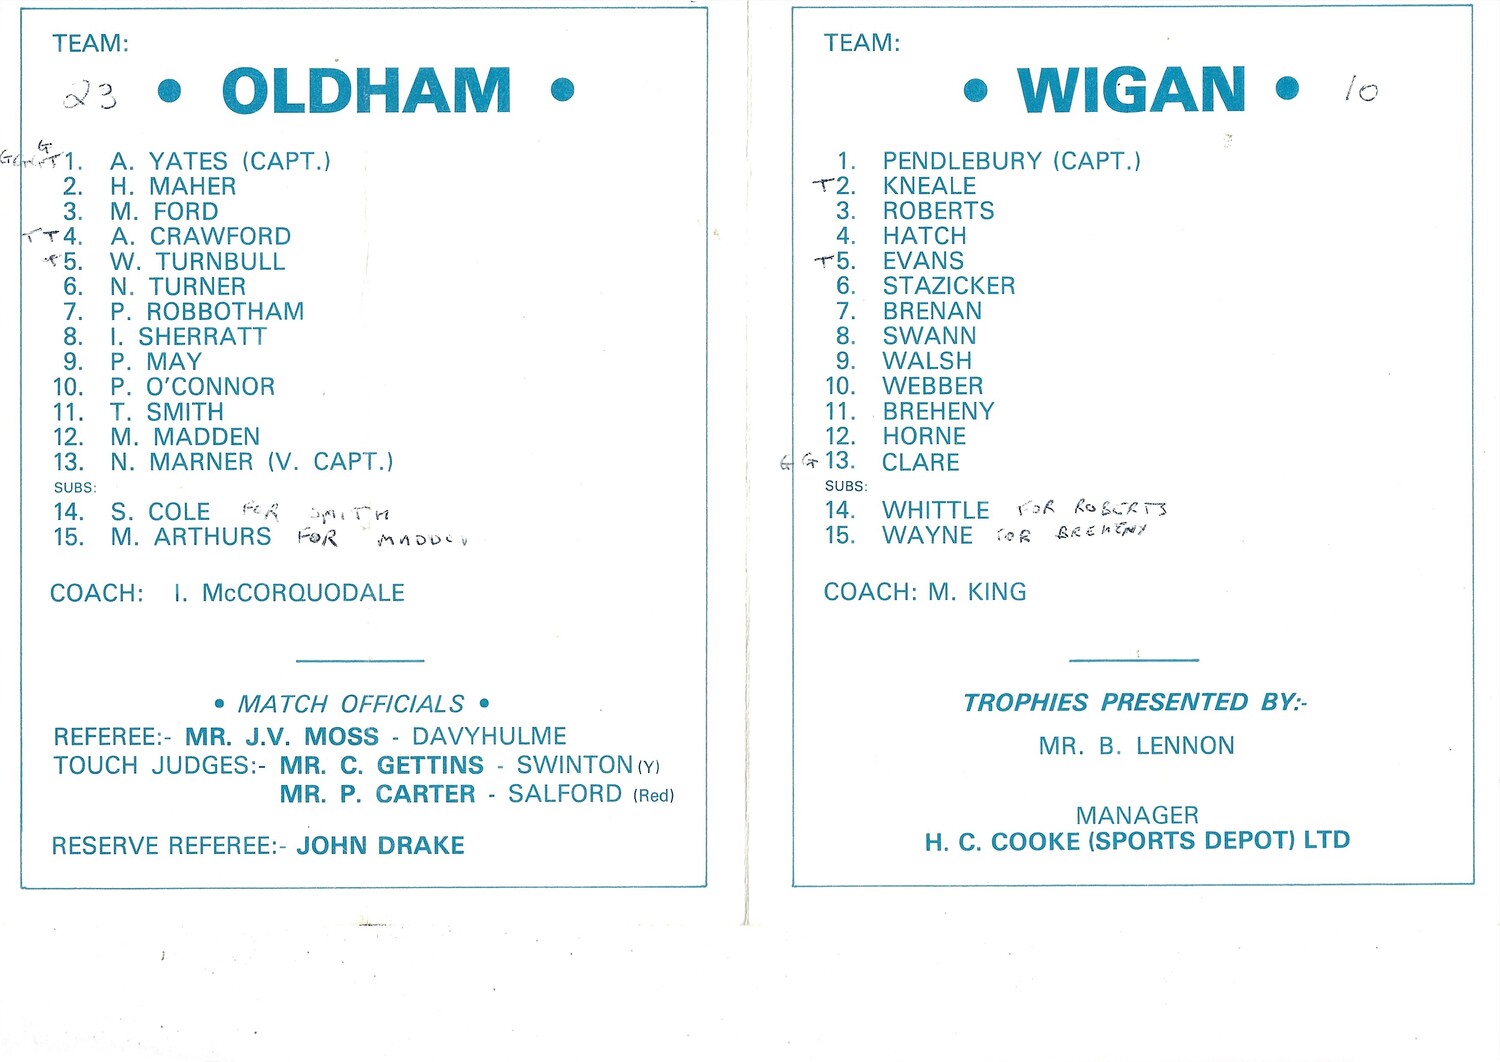 TEAM:
23 • OLDHAM •
G
G G G T 1. A. YATES (CAPT.)
2. H. MAHER
3. M. FORD
T T 4. A. CRAWFORD
T 5. W. TURNBULL
6. N. TURNER
7. P. ROBBOTHAM
8. I. SHERRATT
9. P. MAY
10. P. O'CONNOR
11. T. SMITH
12. M. MADDEN
13. N. MARNER (V. CAPT.)
SUBS:
14. S. COLE FOR SMITH
15. M. ARTHURS FOR MADDEN
COACH: I. McCORQUODALE
• MATCH OFFICIALS •
REFEREE:- MR. J.V. MOSS - DAVYHULME
TOUCH JUDGES:- MR. C. GETTINS - SWINTON (Y)
MR. P. CARTER - SALFORD (Red)
RESERVE REFEREE:- JOHN DRAKE
TEAM:
• WIGAN • 10
1. PENDLEBURY (CAPT.)
T 2. KNEALE
3. ROBERTS
4. HATCH
T 5. EVANS
6. STAZICKER
7. BRENAN
8. SWANN
9. WALSH
10. WEBBER
11. BREHENY
12. HORNE
G G 13. CLARE
SUBS:
14. WHITTLE FOR ROBERTS
15. WAYNE FOR BREHENY
COACH: M. KING
TROPHIES PRESENTED BY:-
MR. B. LENNON
MANAGER
H. C. COOKE (SPORTS DEPOT) LTD